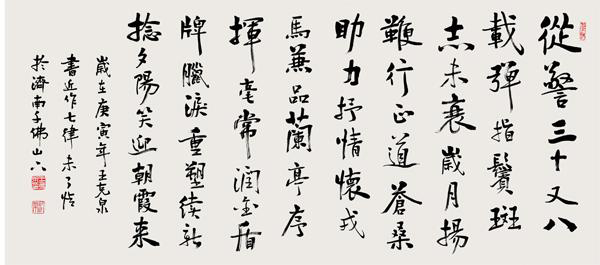 從警三十又八
載彈指鬢斑
志未衰歲月揚
鞭行正道蒼桑
助力抒情懷戎
馬兼品蘭亭序
揮毫常潤金盾
牌臘淚重塑續新
捻夕陽笑迎朝霞来
歲在庚寅年王克泉
書近作七律未了情
於濟南千佛山下